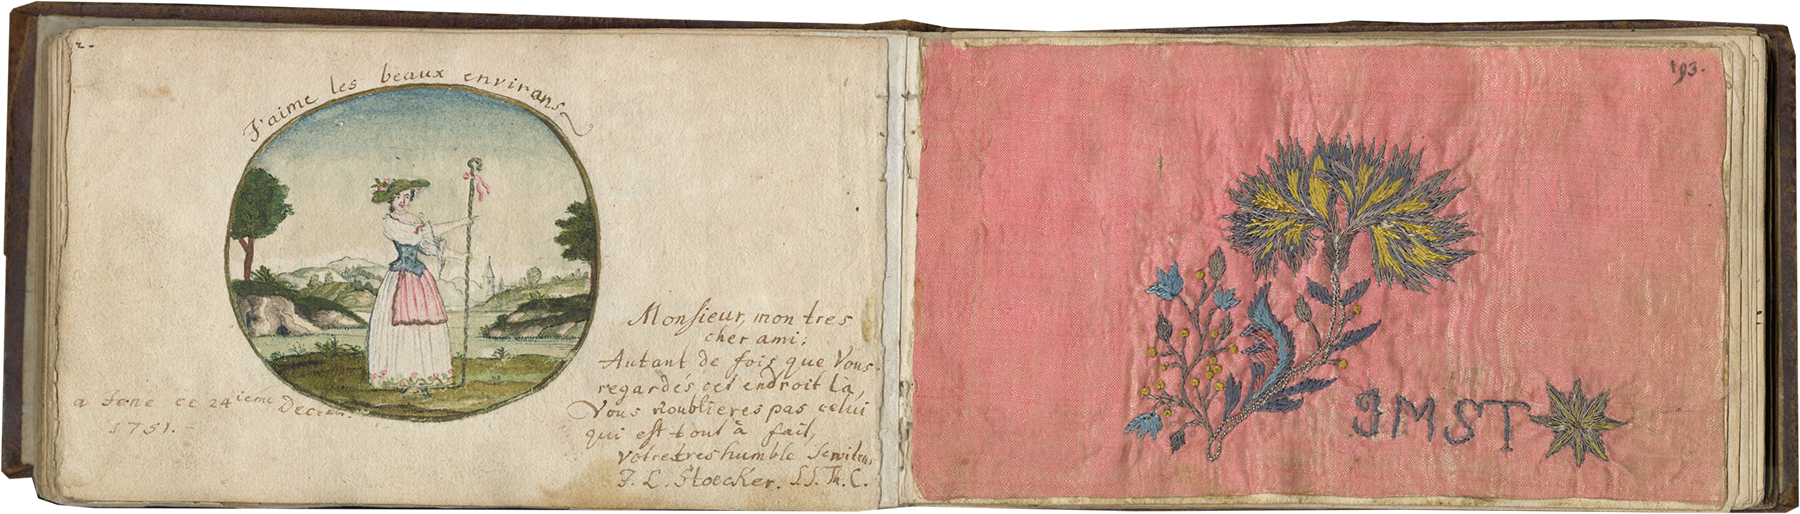 2-
J'aime les beaux environs
Monsieur, mon tres
cher ami:
Autant de fois que Vous
regardés cet endroit la,
Vous n'oublieres pas celui
qui est tout à fait,
votre tres humble Serviteur
J. L. Stoecker. SS. Th. C.
a Jene ce 24ieme Decem.
1751.
193.
JMST